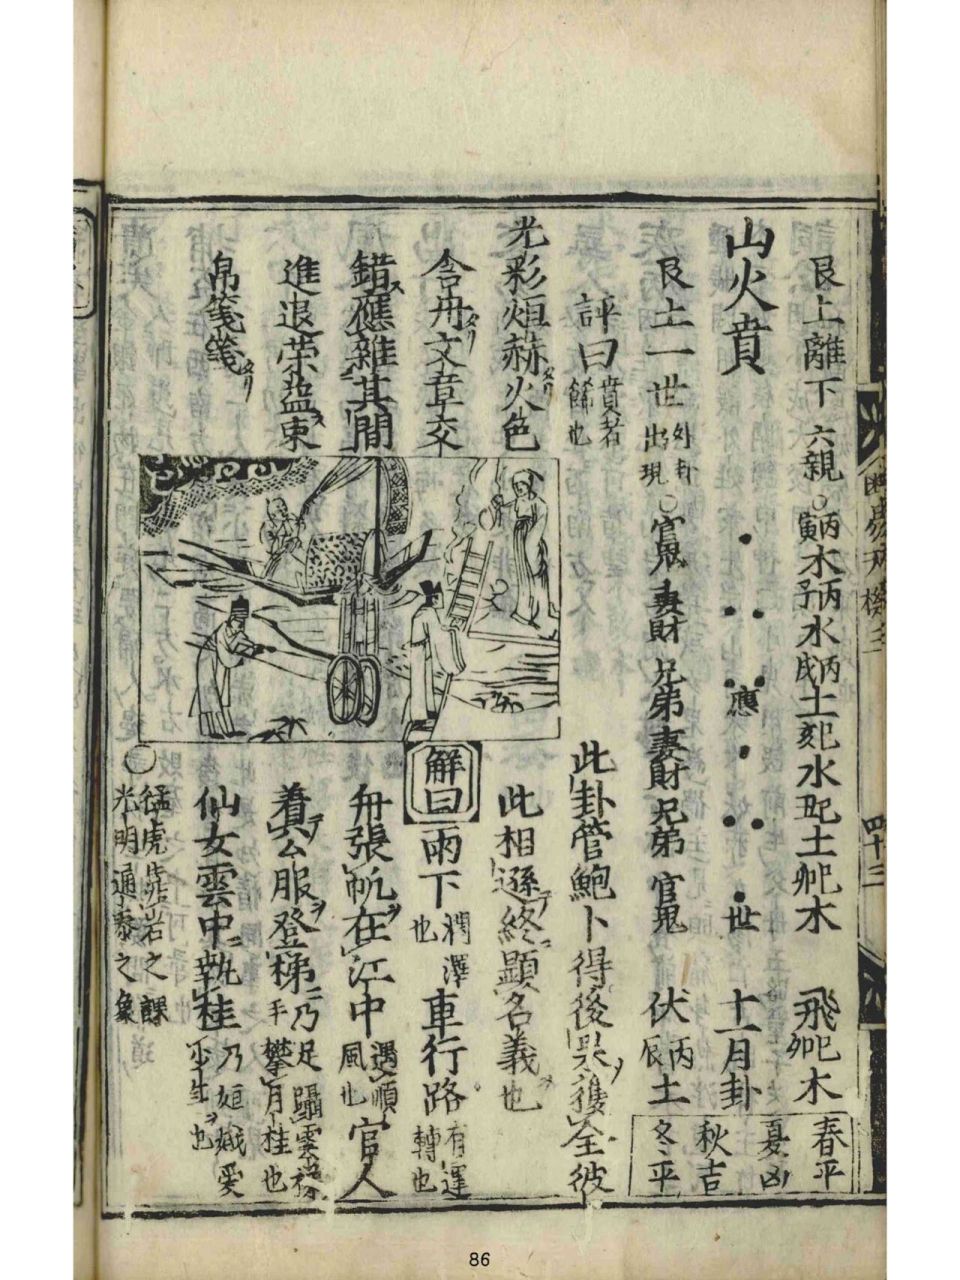 断易天機三 四十三
艮上離下 六親 ○丙寅木丙子水丙戌土己亥水己丑土己卯木 飛己卯木
山火賁 應 世 十一月卦
艮土一世 外卦出現 ○官鬼 妻財 兄弟 妻財 兄弟 官鬼 伏丙辰土
春平
夏凶
秋吉
冬平
評曰 賁者餙也
此卦管鮑卜得後果獲全彼
此相遜終顯名義也
光彩烜赫火色
含丹文章交
錯應雜其間
進退荣益束
帛箋箋
解曰 雨下 潤澤也 車行路 有運轉也
舟張帆在江中 遇順風也 官人
着公服登梯 乃足躡雲梯手攀月桂也
仙女雲中執桂 乃姮娥愛少年也
○ 猛虎靠岩之課
光明通泰之象
86